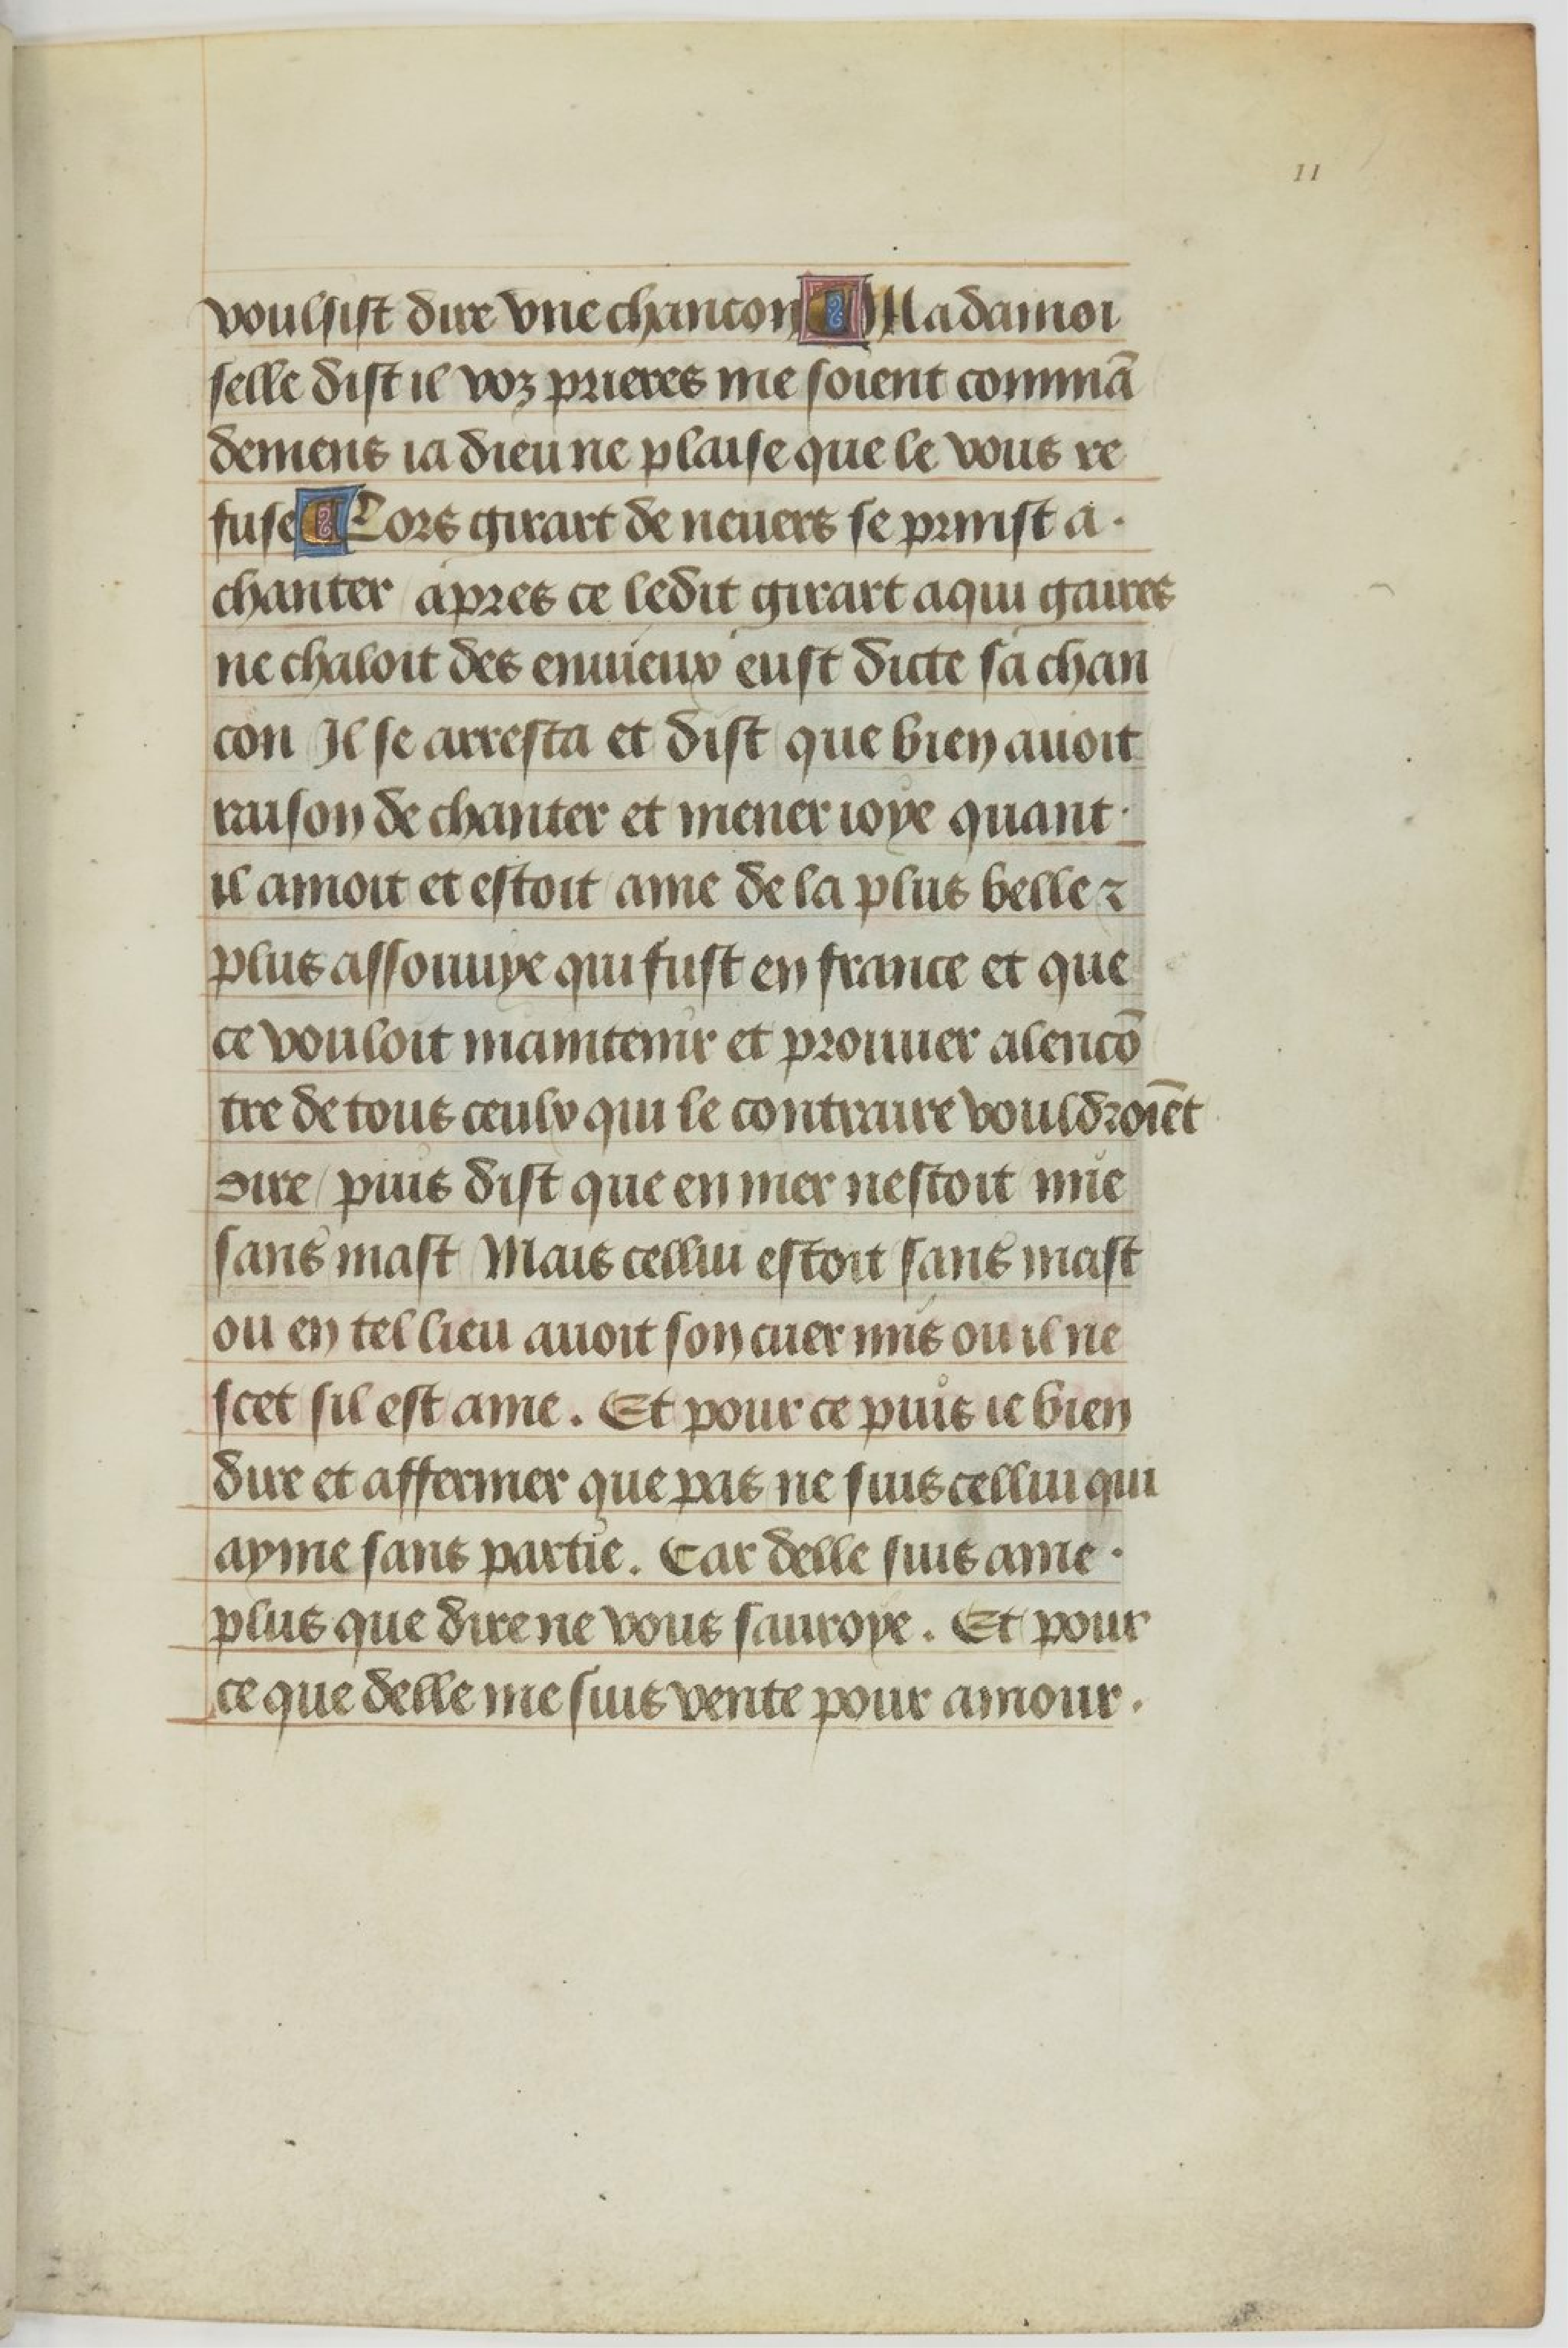 11
voulsist dire vne chancon ¶ Madamoi
selle dist il voz prieres me soient commā
demens ia dieu ne plaise que le vous re
fuse ¶ Lors girart de neuers se prinst a ·
chanter / apres ce ledit girart a qui gaires
ne chaloit des enuieux eust dicte sa chan
con Il se arresta et dist que bien auoit
raison de chanter et mener ioye quant ·
il amoit et estoit ame de la plus belle ⁊
plus assouuye qui fust en france et que
ce vouloit maintenir et prouuer alencō
tre de tous ceulx qui le contraire vouldroiēt
dire / puis dist que en mer nestoit mie
sans mast Mais cellui estoit sans mast
ou en tel lieu auoit son cuer mis ou il ne
scet sil est ame . Et pour ce puis ie bien
dire et affermer que pas ne suis cellui qui
ayme sans partie . Car delle suis ame ·
plus que dire ne vous sauroye . Et pour
ce que delle me suis vente pour amour .